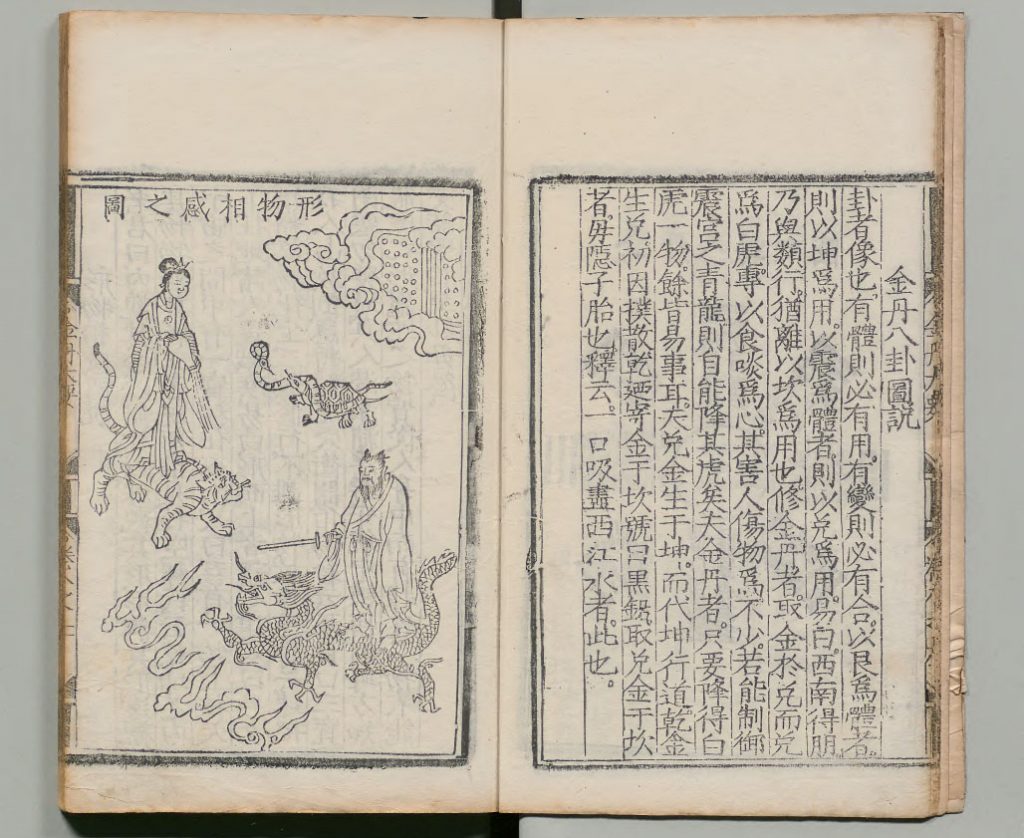 金丹八卦圖説
卦者像也。有體則必有用。有變則必有合。以艮爲體者。
則以坤爲用。以震爲體者。則以兌爲用。易曰。西南得朋。
乃與類行。猶離以坎爲用也。修金丹者。取金於兌。而兌
爲白虎。專以食啖爲心。其害人傷物。爲不少。若能制御
震宮之青龍。則自能降其虎矣。夫金丹者。只要降得白
虎一物。餘皆易事耳。夫兌金生于坤。而代坤行道。乾金
生兌。初因撲散。乾廼寄金于坎。號曰黑鉛。取兌金于坎
者。毋隱子胎也。釋云。一口吸盡西江水者。此也。
形物相感之圖